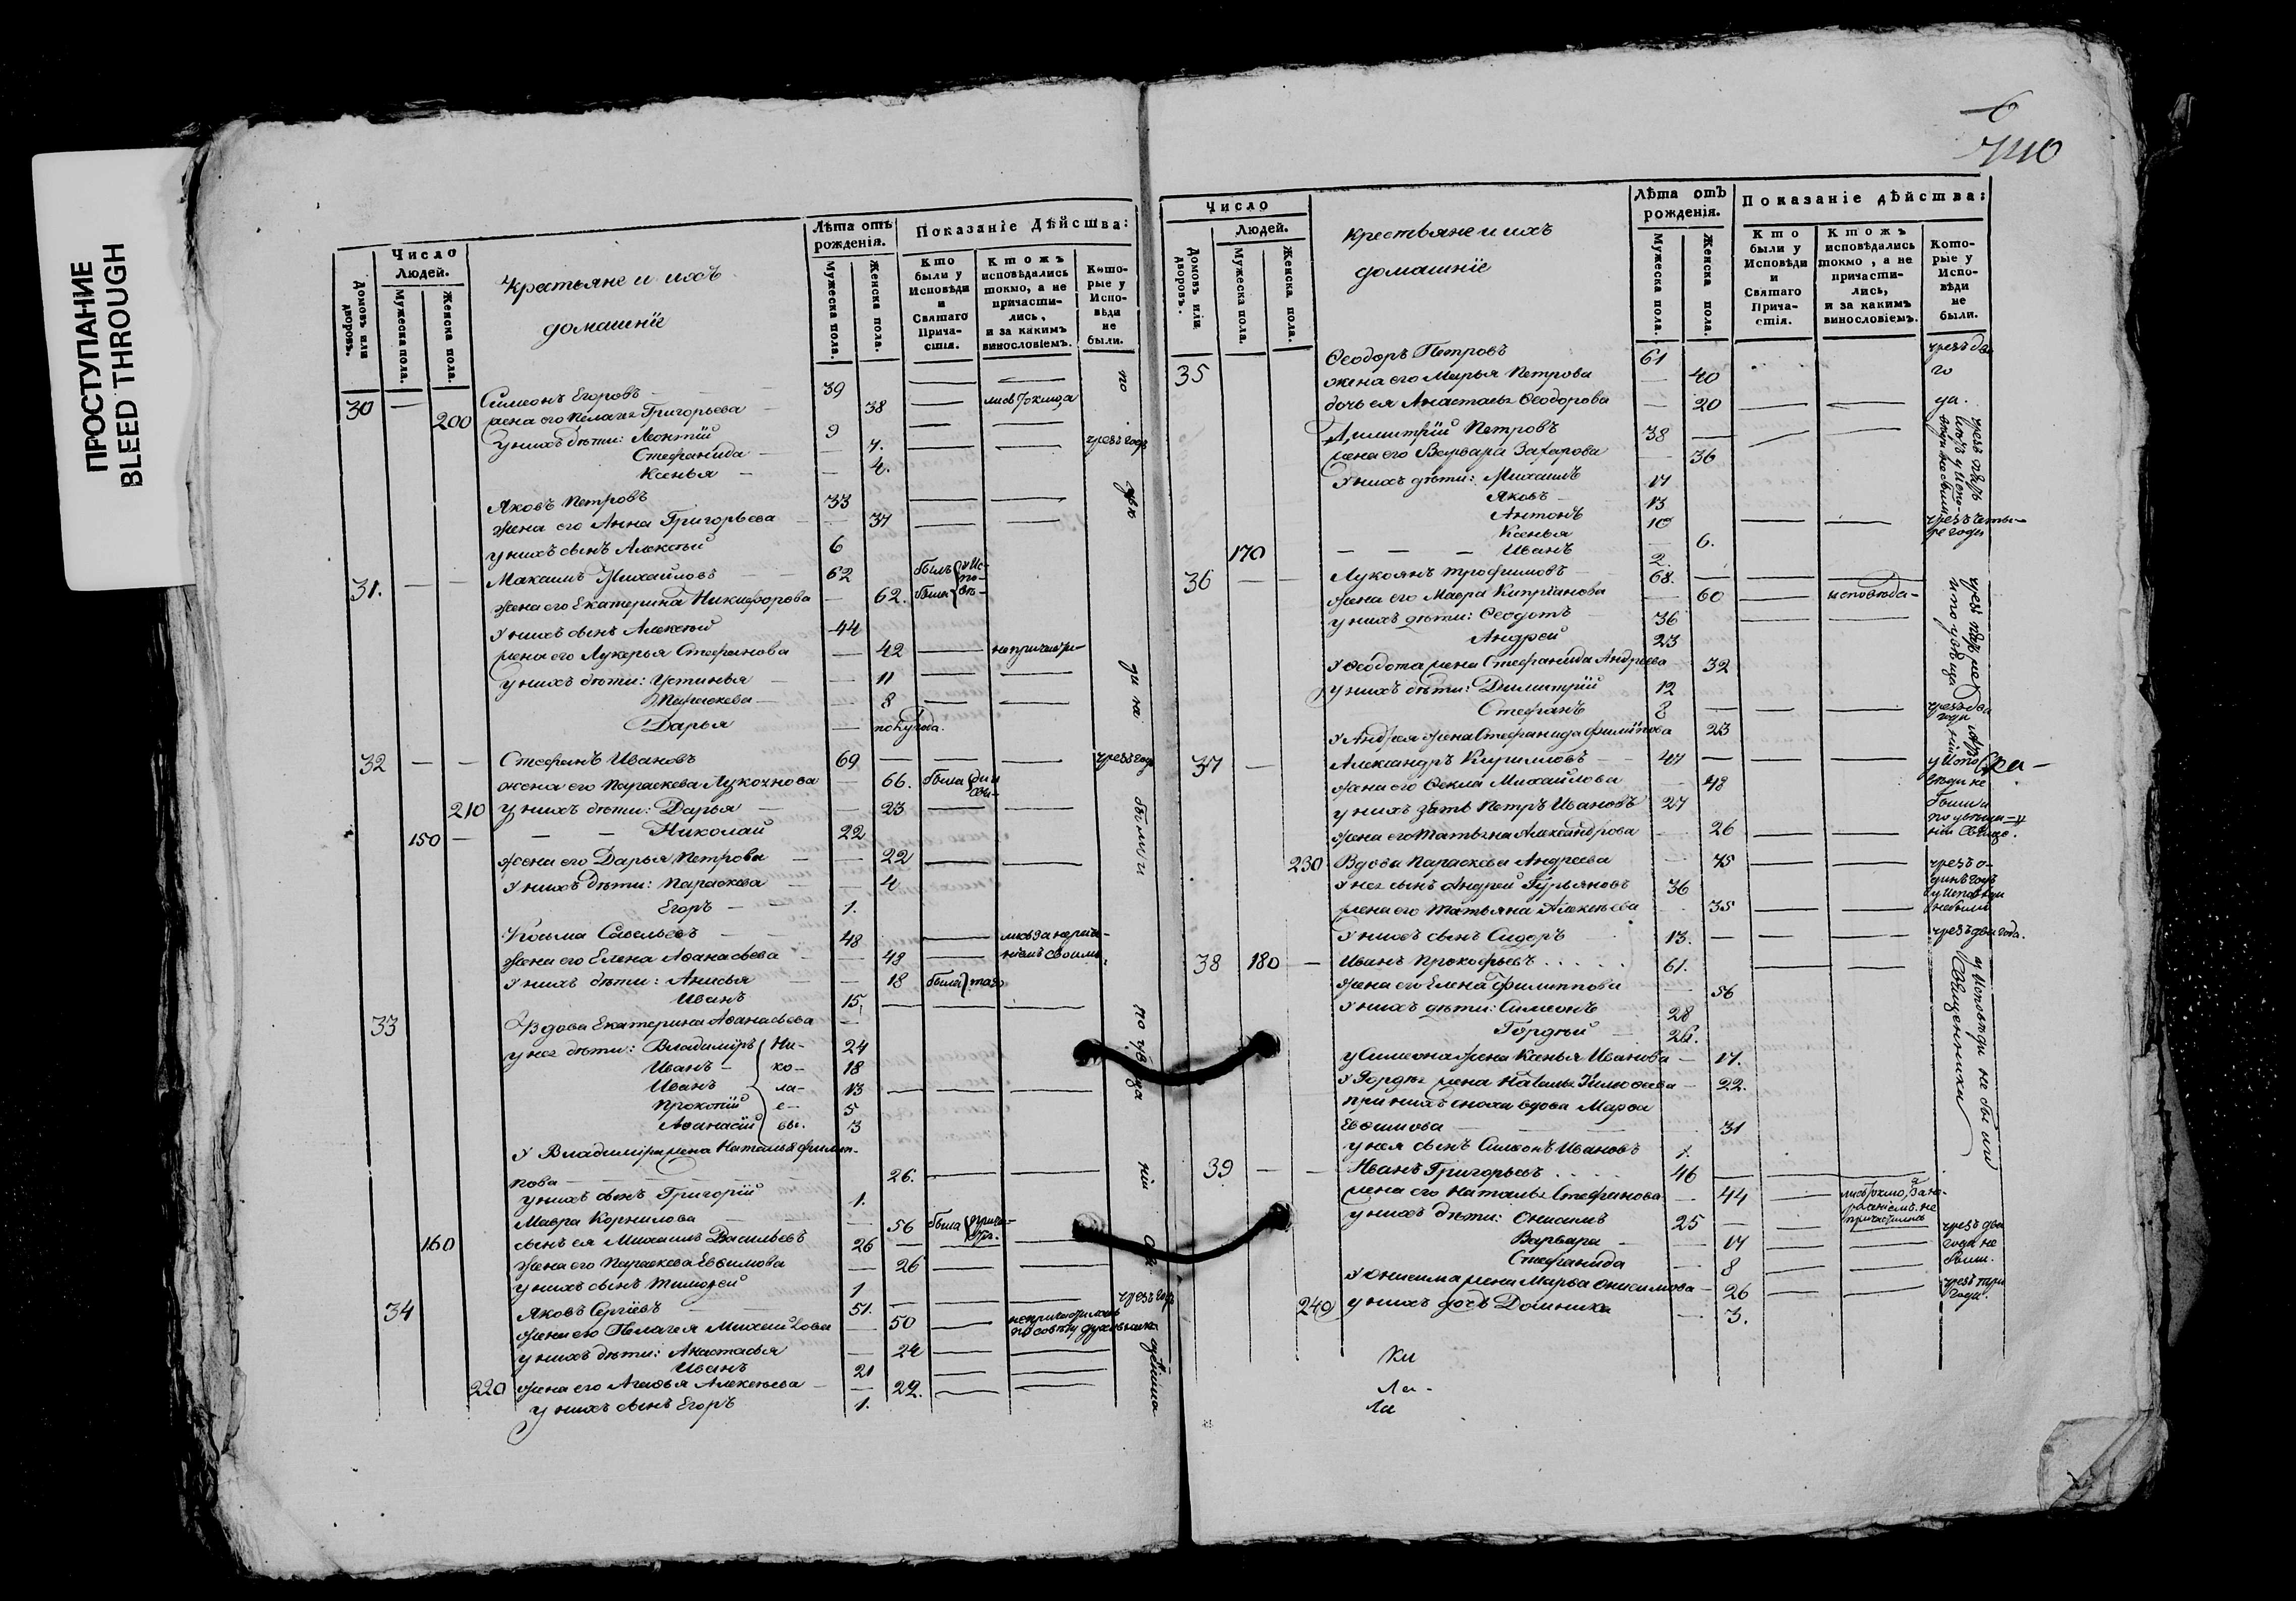 ПРОСТУПАНИЕ
BLEED THROUGH
6
Число
Людей.
Домовъ или дворовъ.
Мужеска пола.
Женска пола.
Крестьяне и ихъ
домашніе
Лѣта отъ рожденія.
Мужеска пола.
Женска пола.
Показаніе Дѣйства:
Кто были у Исповѣди и Святаго Прича-стія.
Ктожъ исповѣдались токмо, а не причасти-лись, и за какимъ винословіемъ.
Кото-рые у Испо-вѣди не были.
Симеонъ Егоровъ 39
30 200 жена его Пелагея Григорьева 38 лись токмо, а
у нихъ дѣти: Леонтій 9
Стефанида 7. чрезъ годъ
Ксенья 4.
Яковъ Петровъ 33
жена его Анна Григорьева 37
у нихъ сынъ Алексѣй 6
31. Максимъ Михайловъ 62 былъ у Ис-по-
жена его Екатерина Никифорова 62. была вѣ-
у нихъ сынъ Алексѣй 44
жена его Лукерья Стефанова 42 не причасти-
у нихъ дѣти: Устинья 11
Параскева 8
Дарья полугода.
32 Стефанъ Ивановъ 69 чрезъ годъ
жена его Параскева Лукоянова 66. была ди и свя-
210 у нихъ дѣти: Дарья 23
150 Николай 22
жена его Дарья Петрова 22
у нихъ дѣти: Параскева 4
Егоръ 1.
Косьма Савельевъ 48 лись за нерадѣ-
жена его Елена Аѳанасьева 48 ніемъ своимъ.
у нихъ дѣти: Анисья 18 была таго
Иванъ 15.
33 Вдова Екатерина Аѳанасьева
у нея дѣти: Владимиръ Ни- 24
Иванъ ко- 18
Иванъ ла- 13
Прокопій е- 5
Аѳанасій вы. 3
У Владиміра жена Наталья Филип-
пова 26.
у нихъ сынъ Григорій 1.
Мавра Корнилова 56 была прича-стія.
160 сынъ ея Михаилъ Васильевъ 26
жена его Параскева Евѳимова 26
у нихъ сынъ Тимоѳей 1
34 Яковъ Сергіевъ 51. чрезъ годъ
жена его Пелагея Михайлова 50 не причастилась по совѣту духовника
у нихъ дѣти: Анастасья 24
Иванъ 21
220 жена его Агафья Алексѣева 22.
у нихъ сынъ Егоръ 1.
Число
Людей.
Домовъ или дворовъ.
Мужеска пола.
Женска пола.
Крестьяне и ихъ
домашніе
Лѣта отъ рожденія.
Мужеска пола.
Женска пола.
Показаніе дѣйства:
Кто были у Исповѣди и Святаго Прича-стія.
Ктожъ исповѣдались токмо, а не причасти-лись, и за какимъ винословіемъ.
Кото-рые у Испо-вѣди не были.
35 Ѳеодоръ Петровъ 61 чрезъ два
жена его Марья Петрова 40 го
дочь ея Анастасья Ѳеодорова 20 да.
Димитрій Петровъ 38
жена его Варвара Захарова 36
У нихъ дѣти: Михаилъ 17
Яковъ 13
Антонъ 10 чрезъ четы-
Ксенья 6. ре года
170 Иванъ 2.
36 Лукоянъ Трофимовъ 68.
жена его Мавра Кипріанова 60 исповѣда-
у нихъ дѣти: Ѳеодотъ 36
Андрей 23
У Ѳеодота жена Стефанида Андреева 32
у нихъ дѣти: Димитрій 12
Стефанъ 8 чрезъ два года
У Андрея жена Стефанида Филиппова 23
37 Александръ Кирилловъ 47 у Испо
жена его Ѳекла Михайлова 48 вѣди не
у нихъ зять Петръ Ивановъ 27 были и
жена его Татьяна Александрова 26 по увѣща-ніи Свяще.
230 Вдова Параскева Андреева 75 чрезъ о-
У нея сынъ Андрей Гурьяновъ 36 динъ годъ
жена его Татьяна Алексѣева 35 у Исповѣди не были
У нихъ сынъ Сидоръ 13. чрезъ два года.
38 180 Иванъ Прокофьевъ 61.
жена его Елена Филиппова 56
у нихъ дѣти: Симеонъ 28
Гордѣй 26.
у Симеона жена Ксенья Иванова 17.
У Гордѣя жена Наталья Тимоѳеева 22.
при нихъ сноха вдова Марѳа
Евѳимова 31
у нея сынъ Симеонъ Ивановъ 1.
у Исповѣди не были
Священника
39 Иванъ Григорьевъ 46
жена его Наталья Стефанова 44 лись токмо, а за не-
у нихъ дѣти: Онисимъ 25 раденіемъ не причастились
Варвара 17 чрезъ два года не были.
Стефанида 8
У Онисима жена Марѳа Онисимова 26 чрезъ три года.
240 у нихъ дочь Домника 3.
Ли-
Ли